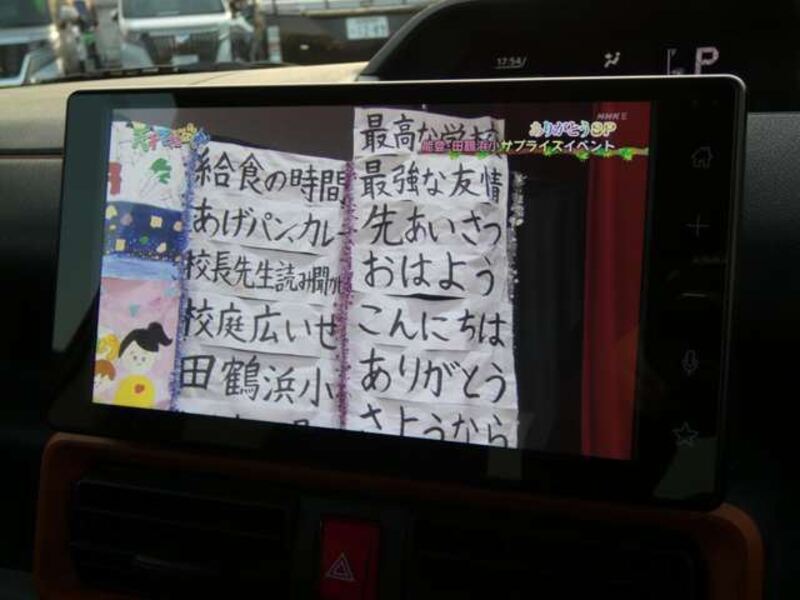 17:54
P
NHK E
ありがとうSP
能登・田鶴浜小サプライズイベント
最高な学校
最強な友情
先あいさつ
おはよう
こんにちは
ありがとう
さようなら
給食の時間
あげパン、カレー
校長先生読み聞かせ
校庭広いぜ
田鶴浜小